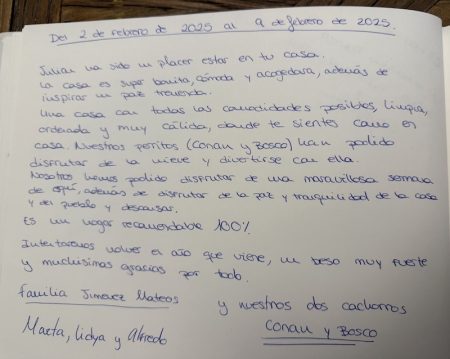 Del 2 de febrero de 2025 al 9 de febrero de 2025.
Julian ha sido un placer estar en tu casa.
La casa es super bonita, cómoda y acogedora, además de
inspirar un paz tremenda.
Una casa con todas las comodidades posibles, limpia,
ordenada y muy cálida, donde te sientes como en
casa. Nuestros perritos (Conan y Bosco) han podido
disfrutar de la nieve y divertirse con ella.
Nosotros hemos podido disfrutar de una maravillosa semana
de esquí, además de disfrutar de la paz y tranquilidad de la casa
y del pueblo y descansar.
Es un hogar recomendable 100%
Intentaremos volver el año que viene, un beso muy fuerte
y muchisimas gracias por todo.
Familia Jimenez Mateos
y nuestros dos cachorros
Marta, Lidya y Alfredo
Conan y Bosco